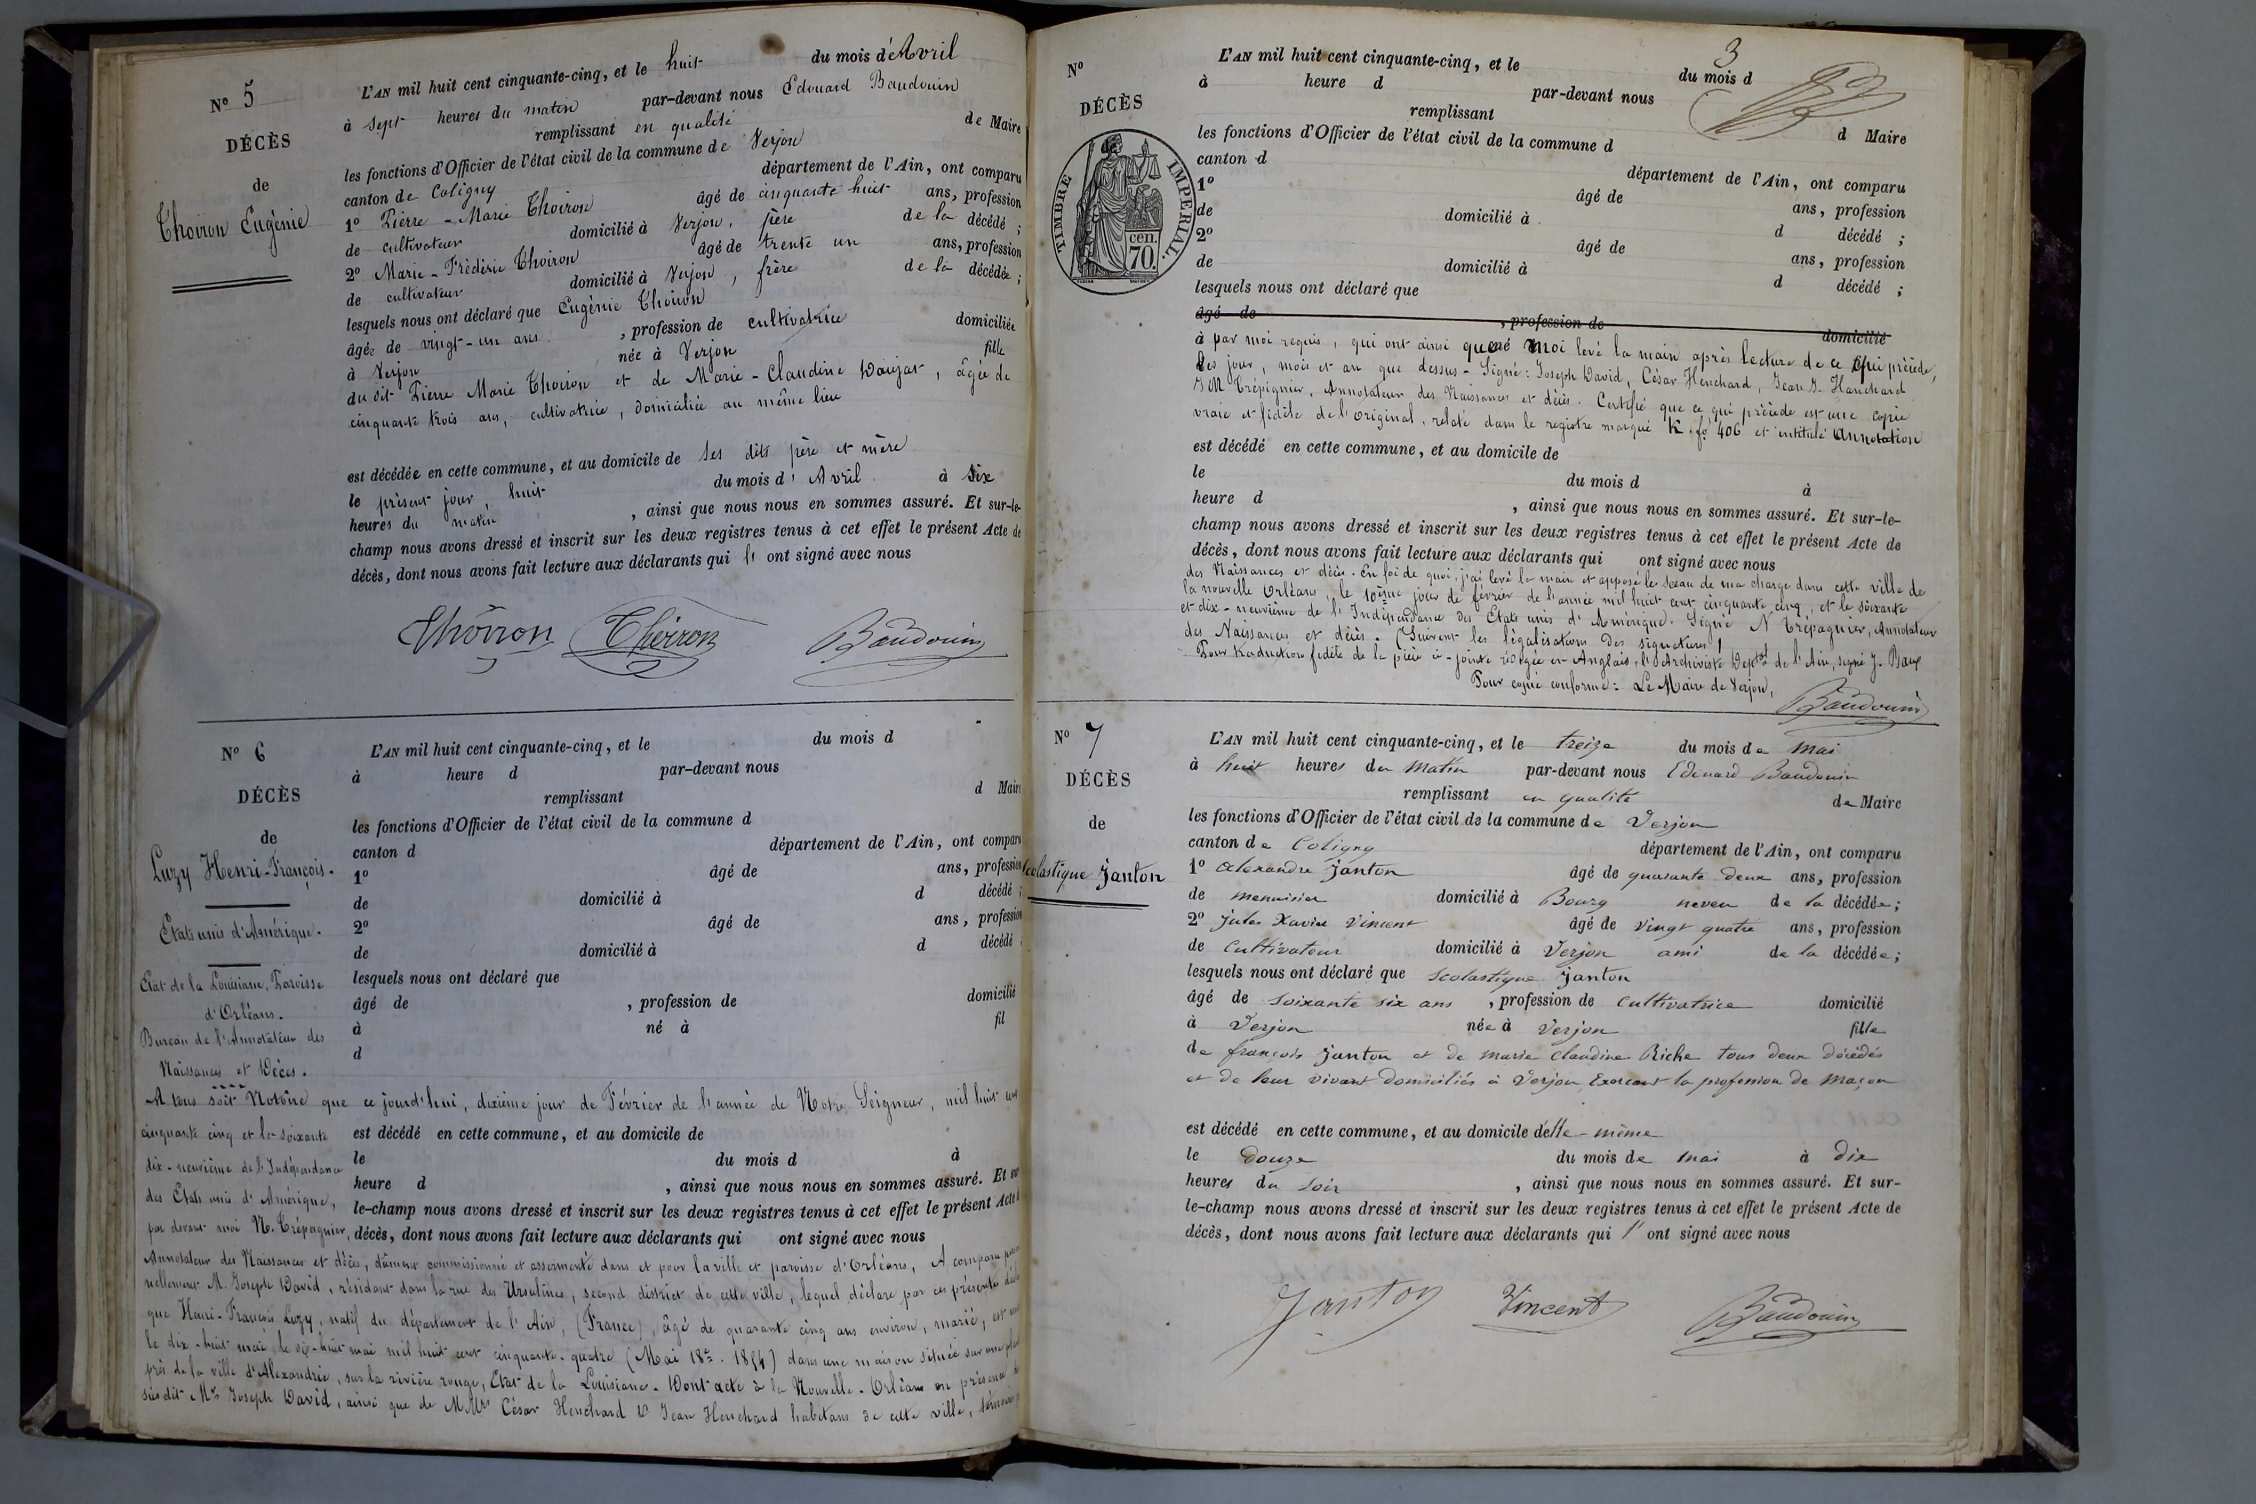 N° 5
DÉCÈS
de
Thoiron Eugénie
L'AN mil huit cent cinquante-cinq, et le huit du mois d'Avril
à sept heures du matin par-devant nous Edouard Baudouin
remplissant en qualité de Maire
les fonctions d'Officier de l'état civil de la commune de Verjon
canton de Coligny département de l'Ain, ont comparu
1° Pierre-Marie Thoiron âgé de cinquante huit ans, profession
de cultivateur domicilié à Verjon, père de la décédé ;
2° Marie-Frédéric Thoiron âgé de trente un ans, profession
de cultivateur domicilié à Verjon, frère de la décédée ;
lesquels nous ont déclaré que Eugénie Thoiron
âgée de vingt-un ans, profession de cultivatrice domiciliée
à Verjon née à Verjon fille
du dit Pierre Marie Thoiron et de Marie-Claudine Daujat, âgée de
cinquante trois ans, cultivatrice, domiciliée au même lieu
est décédée en cette commune, et au domicile de ses dits père et mère
le présent jour, huit du mois d'Avril à six
heures du matin, ainsi que nous nous en sommes assuré. Et sur-le-
champ nous avons dressé et inscrit sur les deux registres tenus à cet effet le présent Acte de
décès, dont nous avons fait lecture aux déclarants qui l' ont signé avec nous
Thoiron Thoiron Baudouin
N° 6
DÉCÈS
de
Luzy Henri-François.
Etats unis d'Amérique.
Etat de la Louisiane, Paroisse
d'Orléans.
Bureau de l'Annotateur des
Naissances et Décès.
L'AN mil huit cent cinquante-cinq, et le du mois d
à heure d par-devant nous
remplissant d Maire
les fonctions d'Officier de l'état civil de la commune d
canton d département de l'Ain, ont comparu
1° âgé de ans, profession
de domicilié à d décédé ;
2° âgé de ans, profession
de domicilié à d décédé
lesquels nous ont déclaré que
âgé de , profession de domicilié
à né à fil
d
A tous soit Notoire que ce jourd'hui, dixième jour de Février de l'année de Notre Seigneur, mil huit cent
cinquante cinq et la soixante
dix-neuvième de l'Indépendance
des Etats unis d'Amérique,
par devant moi N. Trépagnier,
est décédé en cette commune, et au domicile de
le du mois d à
heure d , ainsi que nous nous en sommes assuré. Et sur
le-champ nous avons dressé et inscrit sur les deux registres tenus à cet effet le présent Acte d
décès, dont nous avons fait lecture aux déclarants qui ont signé avec nous
Annotateur des Naissances et décès, dûment commissionné et assermenté dans et pour la ville et paroisse d'Orléans, A comparu
nellement M. Joseph David, résidant dans la rue des Ursulines, second district de cette ville, lequel déclare par ces présentes
que Henri-François Luzy, natif du département de l'Ain, (France), âgé de quarante cinq ans environ, marié, est
le dix-huit mai, le dix-huit mai mil huit cent cinquante-quatre (Mai 18. 1854) dans une maison située sur une
près de la ville d'Alexandrie, sur la rivière rouge, Etat de la Louisiane. Dont acte à la Nouvelle-Orléans en présence
susdit Mr Joseph David, ainsi que de MMrs César Henchard & Jean Henchard habitans de cette ville,
3
N°
DÉCÈS
TIMBRE IMPERIAL.
cen.
70.
L'AN mil huit cent cinquante-cinq, et le du mois d
à heure d par-devant nous
remplissant d Maire
les fonctions d'Officier de l'état civil de la commune d
canton d département de l'Ain, ont comparu
1° âgé de ans, profession
de domicilié à d décédé ;
2° âgé de ans, profession
de domicilié à d décédé ;
lesquels nous ont déclaré que
âgé de , profession de domicilié
à par moi requis, qui ont ainsi que moi levé la main après lecture de ce qui précède,
Les jour, mois et an que dessus - Signé : Joseph David, César Henchard, Jean J. Hanchard
Trépagnier, Annotateur des Naissances et décès. Certifié que ce qui précède est une copie
vraie et fidèle de l'original, relaté dans le registre marqué K. fo 406 et intitulé Annotation
est décédé en cette commune, et au domicile de
le du mois d à
heure d , ainsi que nous nous en sommes assuré. Et sur-le-
champ nous avons dressé et inscrit sur les deux registres tenus à cet effet le présent Acte de
décès, dont nous avons fait lecture aux déclarants qui ont signé avec nous
des Naissances et décès. En foi de quoi, j'ai levé la main et apposé le sceau de ma charge dans cette ville de
la nouvelle Orléans, le 10ème jour de février de l'année mil huit cent cinquante cinq, et le soixante
et dix-neuvième de l'Indépendance des Etats unis d'Amérique. Signé N Trépagnier, Annotateur
des Naissances et décès. (Suivent les légalisations des signatures)
Pour traduction fidèle de la pièce ci-jointe rédigée en Anglais, l'Archiviste Deptal de l'Ain, signé J. Baux
Pour copie conforme : Le Maire de Verjon,
Baudouin
N° 7
DÉCÈS
de
Scolastique Janton
L'AN mil huit cent cinquante-cinq, et le treize du mois de Mai
à huit heures du Matin par-devant nous Edouard Baudouin
remplissant en qualité de Maire
les fonctions d'Officier de l'état civil de la commune de Verjon
canton de Coligny département de l'Ain, ont comparu
1° Alexandre Janton âgé de quarante deux ans, profession
de menuisier domicilié à Bourg neveu de la décédée ;
2° Jules Xavier Vincent âgé de vingt quatre ans, profession
de Cultivateur domicilié à Verjon ami de la décédée ;
lesquels nous ont déclaré que Scolastique Janton
âgé de soixante six ans, profession de Cultivatrice domicilié
à Verjon née à Verjon fille
de françois Janton et de marie Claudine Riche tous deux décédés
et de leur vivant domiciliés à Verjon Exercant la profession de Maçon
est décédé en cette commune, et au domicile d'elle-même
le Douze du mois de Mai à dix
heures du soir, ainsi que nous nous en sommes assuré. Et sur-
le-champ nous avons dressé et inscrit sur les deux registres tenus à cet effet le présent Acte de
décès, dont nous avons fait lecture aux déclarants qui l' ont signé avec nous
Janton Vincent Baudouin